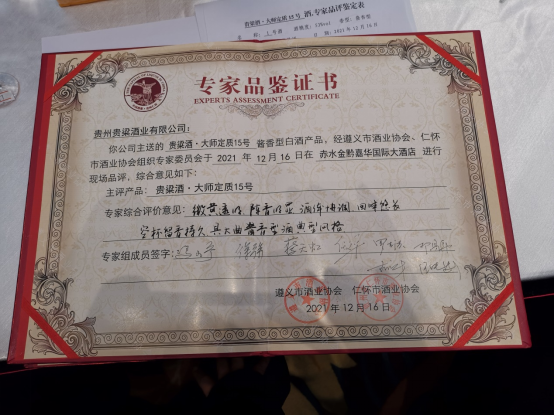 贵梁酒·大师定质15号 酒,专家品评鉴定表
2021年12月16日
专家品鉴证书
EXPERTS ASSESSMENT CERTIFICATE
贵州贵梁酒业有限公司:
你公司主送的 贵梁酒·大师定质15号 酱香型白酒产品,经遵义市酒业协会、仁怀
市酒业协会组织专家委员会于 2021 年 12 月 16 日在 赤水金黔嘉华国际大酒店 进行
现场品评,综合意见如下:
主评产品:贵梁酒·大师定质15号
专家综合评价意见:微黄透明 酱香明显 酒体协调 回味悠长
空杯留香持久 具大曲酱香型酒典型风格
专家组成员签字:
遵义市酒业协会 仁怀市酒业协会
2021 年 12 月 16 日